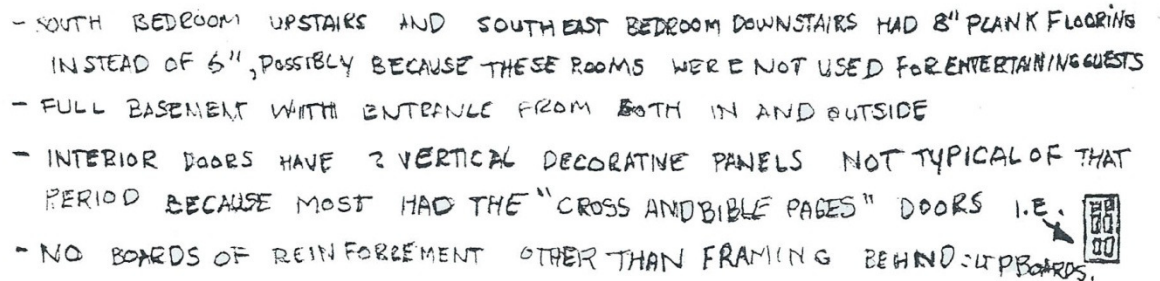 - SOUTH BEDROOM UPSTAIRS AND SOUTHEAST BEDROOM DOWNSTAIRS HAD 8" PLANK FLOORING
INSTEAD OF 6", POSSIBLY BECAUSE THESE ROOMS WERE NOT USED FOR ENTERTAINING GUESTS
- FULL BASEMENT WITH ENTRANCE FROM BOTH IN AND OUTSIDE
- INTERIOR DOORS HAVE 2 VERTICAL DECORATIVE PANELS NOT TYPICAL OF THAT
PERIOD BECAUSE MOST HAD THE "CROSS AND BIBLE PAGES" DOORS I.E.
- NO BOARDS OF REINFORCEMENT OTHER THAN FRAMING BEHIND